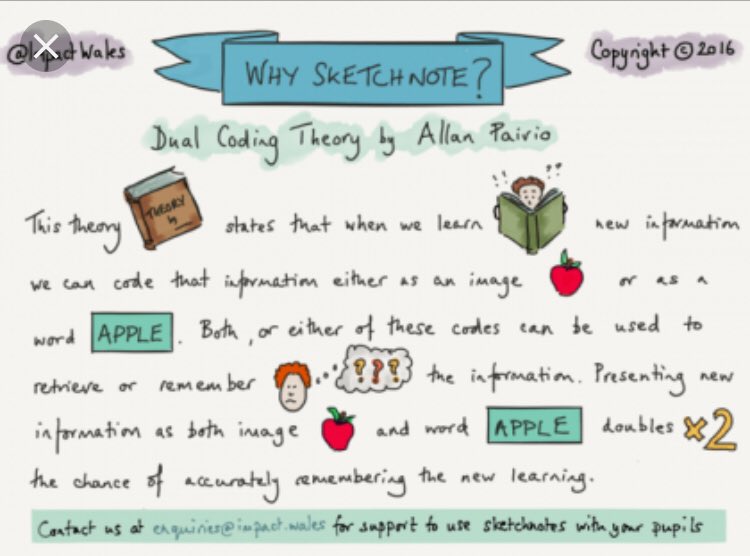 @ImpactWales
WHY SKETCHNOTE?
Copyright © 2016
Dual Coding Theory by Allan Paivio
This theory THEORY by states that when we learn !! ?? new information
we can code that information either as an image or as a
word APPLE. Both, or either of these codes can be used to
retrieve or remember ??? the information. Presenting new
information as both image and word APPLE doubles x2
the chance of accurately remembering the new learning.
Contact us at enquiries@impact.wales for support to use sketchnotes with your pupils